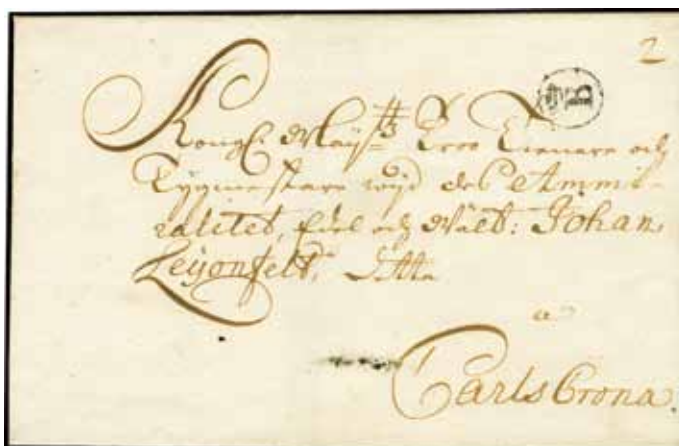 2
B
Kongl. Maij:tz Troo Tienare och
Tygmestare wijd des Ammi-
ralitet, Edel och Wält: Johan
Leijonfelt, Ditta
a
CarlsCrona.